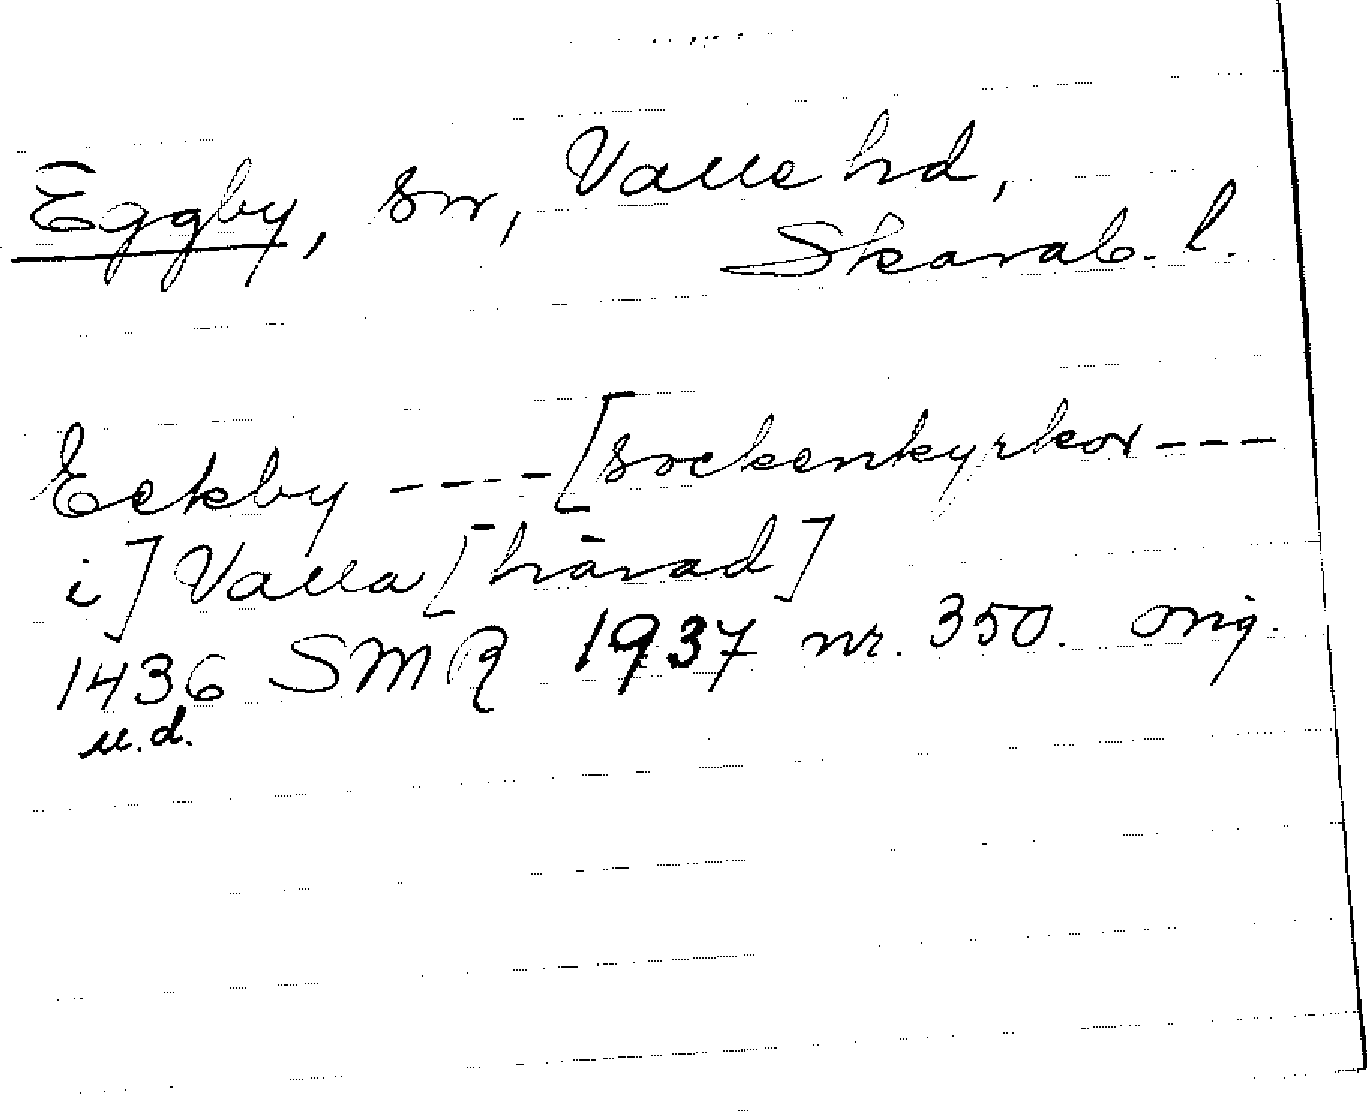 Eggby, sn, Valle hd,
Skarab. l.
Eckby ---- [sockenkyrkor ---
i] Valla [härad]
1436 SMR 1937 nr. 350. orig.
u.d.